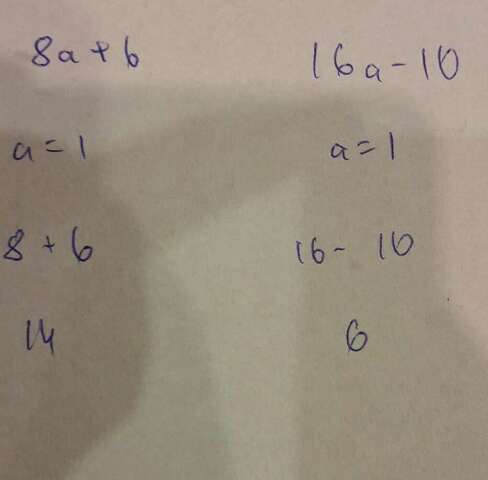 8a+6 16a-10
a=1 a=1
8+6 16-10
14 6